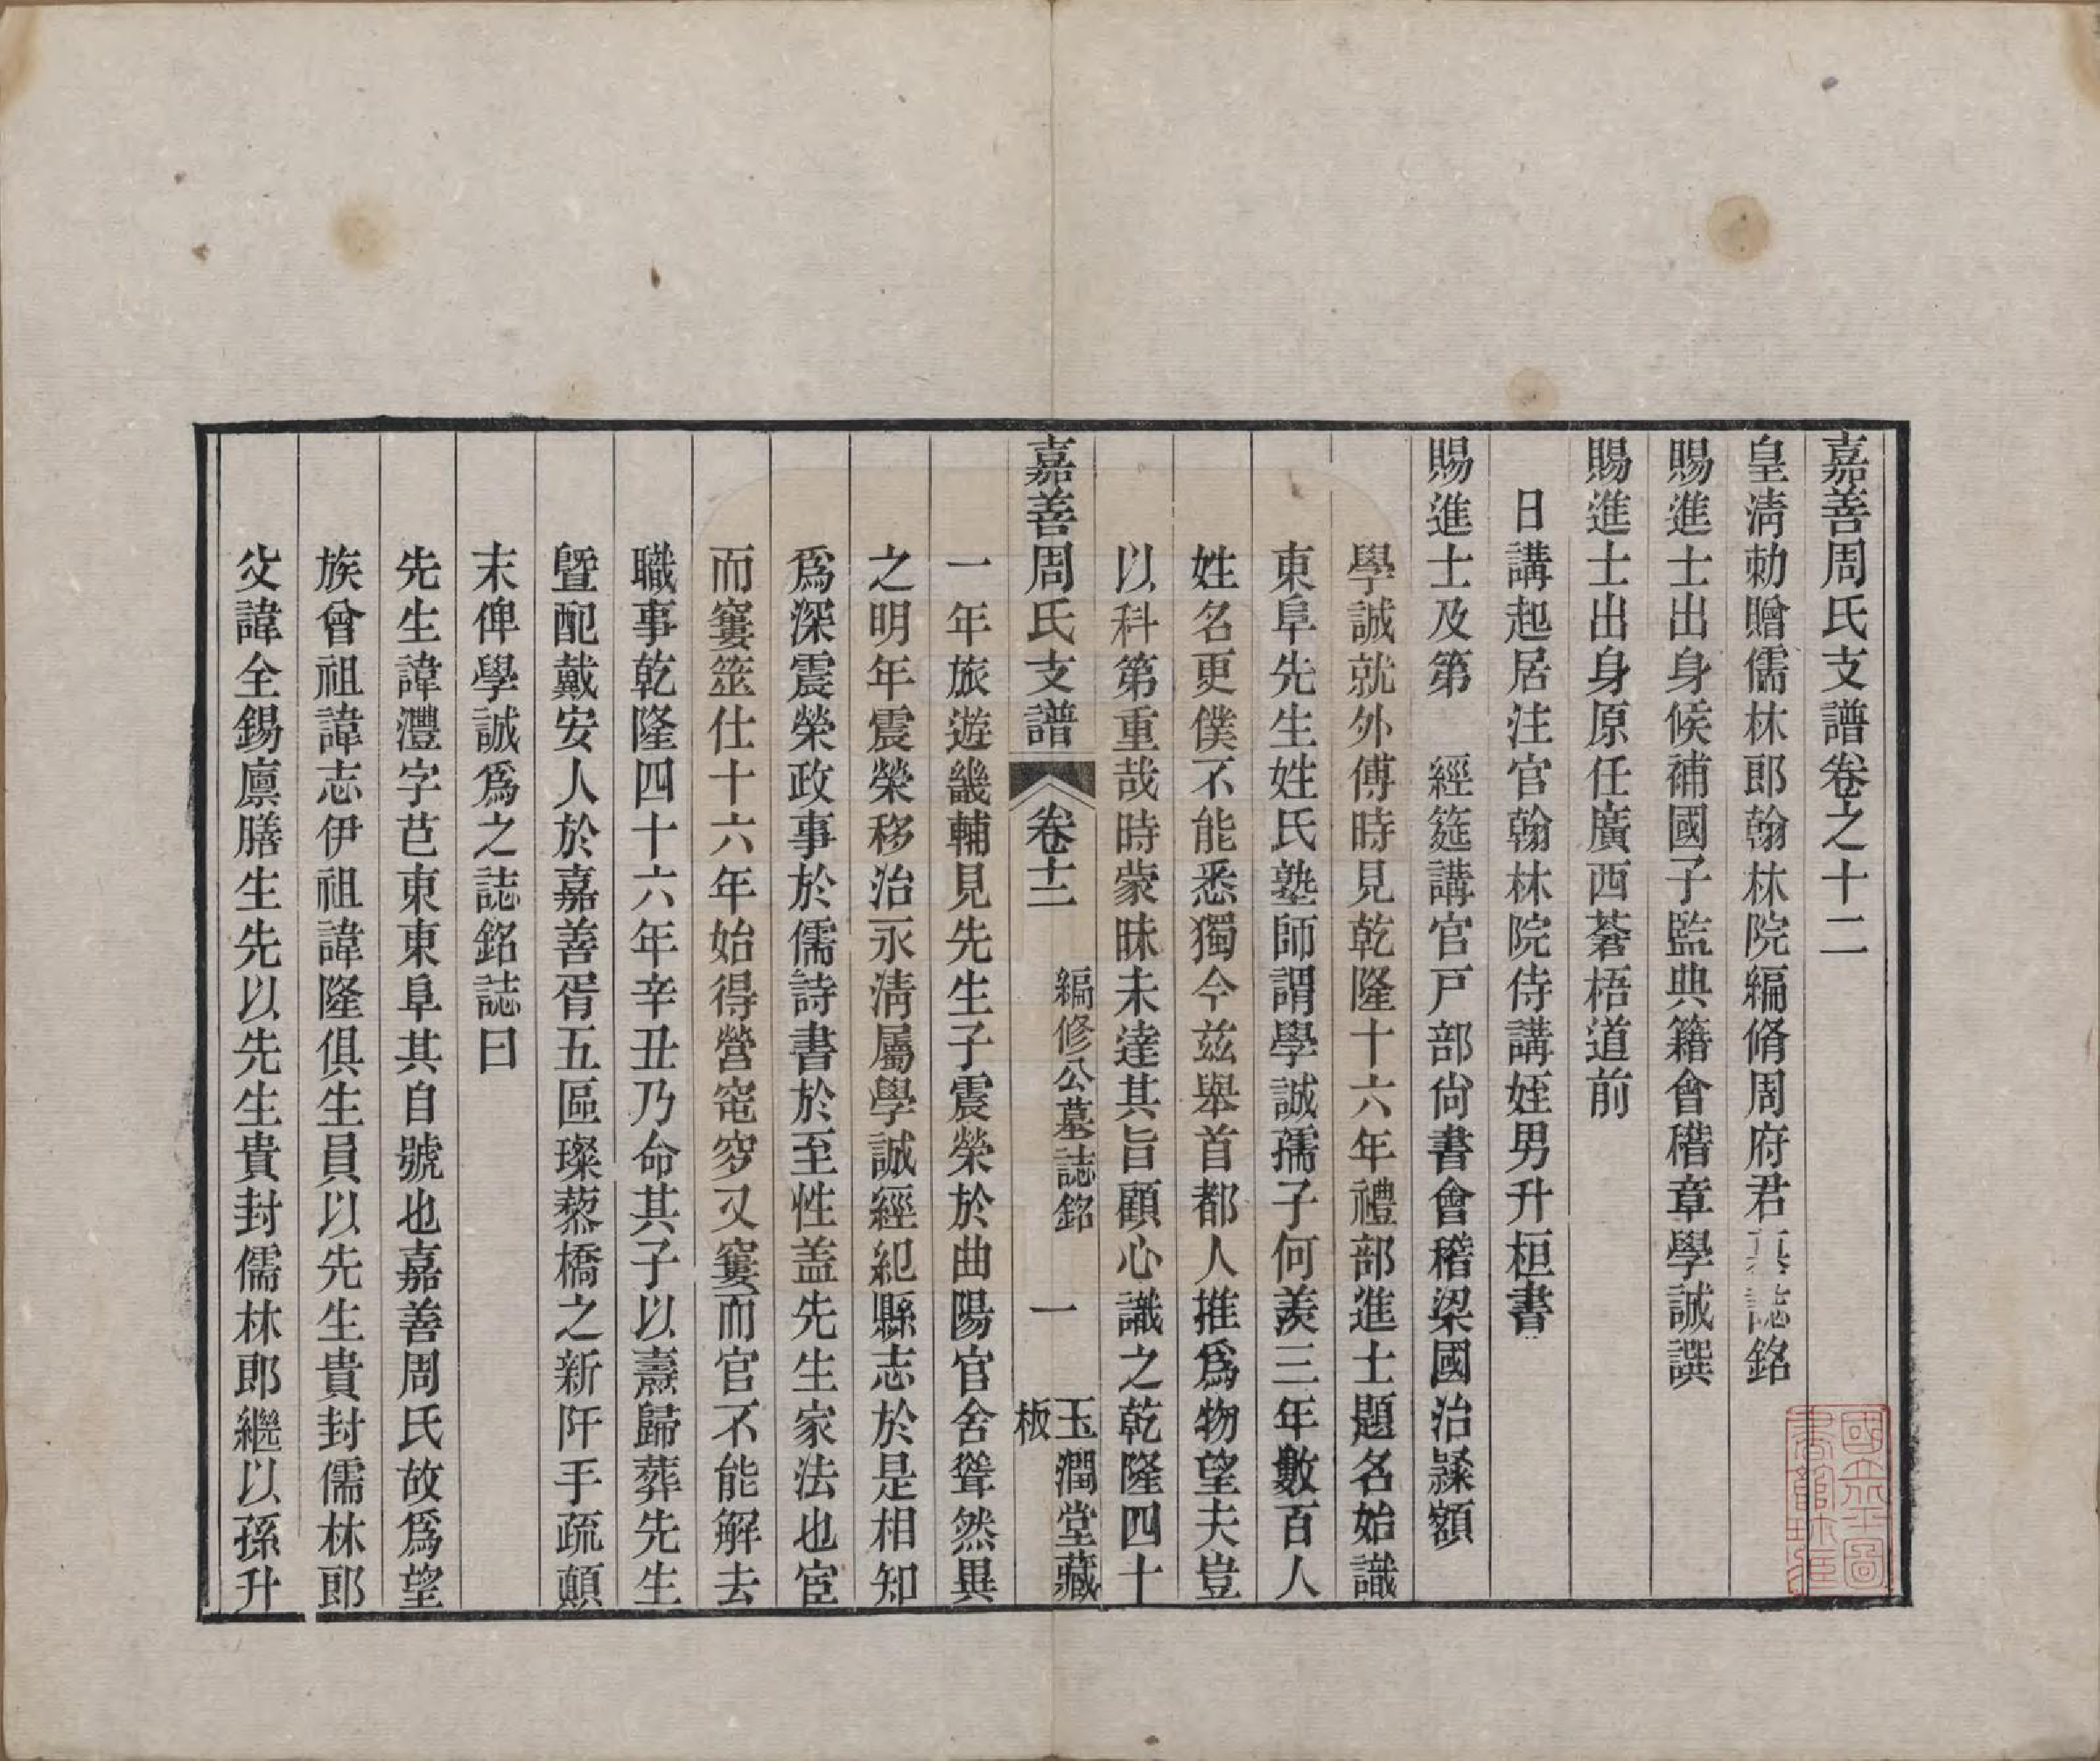 嘉善周氏支譜卷之十二
皇淸勅贈儒林郎翰林院編脩周府君墓誌銘
賜進士出身候補國子監典籍會稽章學誠譔
賜進士出身原任廣西蒼梧道前
日講起居注官翰林院侍講姪男升桓書
賜進士及第　經筵講官戸部尙書會稽梁國治隷額
學誠就外傅時見乾隆十六年禮部進士題名始識
東阜先生姓氏塾師謂學誠孺子何羨三年數百人
姓名更僕不能悉獨今兹舉首都人推爲物望夫豈
以科第重哉時蒙昧未達其旨顧心識之乾隆四十
嘉善周氏支譜　卷十二　編修公墓誌銘　一　玉潤堂藏板
一年旅遊畿輔見先生子震榮於曲陽官舍聳然異
之明年震榮移治永淸屬學誠經紀縣志於是相知
爲深震榮政事於儒詩書於至性盖先生家法也宦
而窶筮仕十六年始得營窀穸又窶而官不能解去
職事乾隆四十六年辛丑乃命其子以燾歸葬先生
暨配戴安人於嘉善胥五區璨蔾橋之新阡手疏顛
末俾學誠爲之誌銘誌曰
先生諱灃字芑東東阜其自號也嘉善周氏故爲望
族曾祖諱志伊祖諱隆俱生員以先生貴封儒林郎
父諱全錫廪膳生先以先生貴封儒林郎繼以孫升
國立北平圖書館珍藏